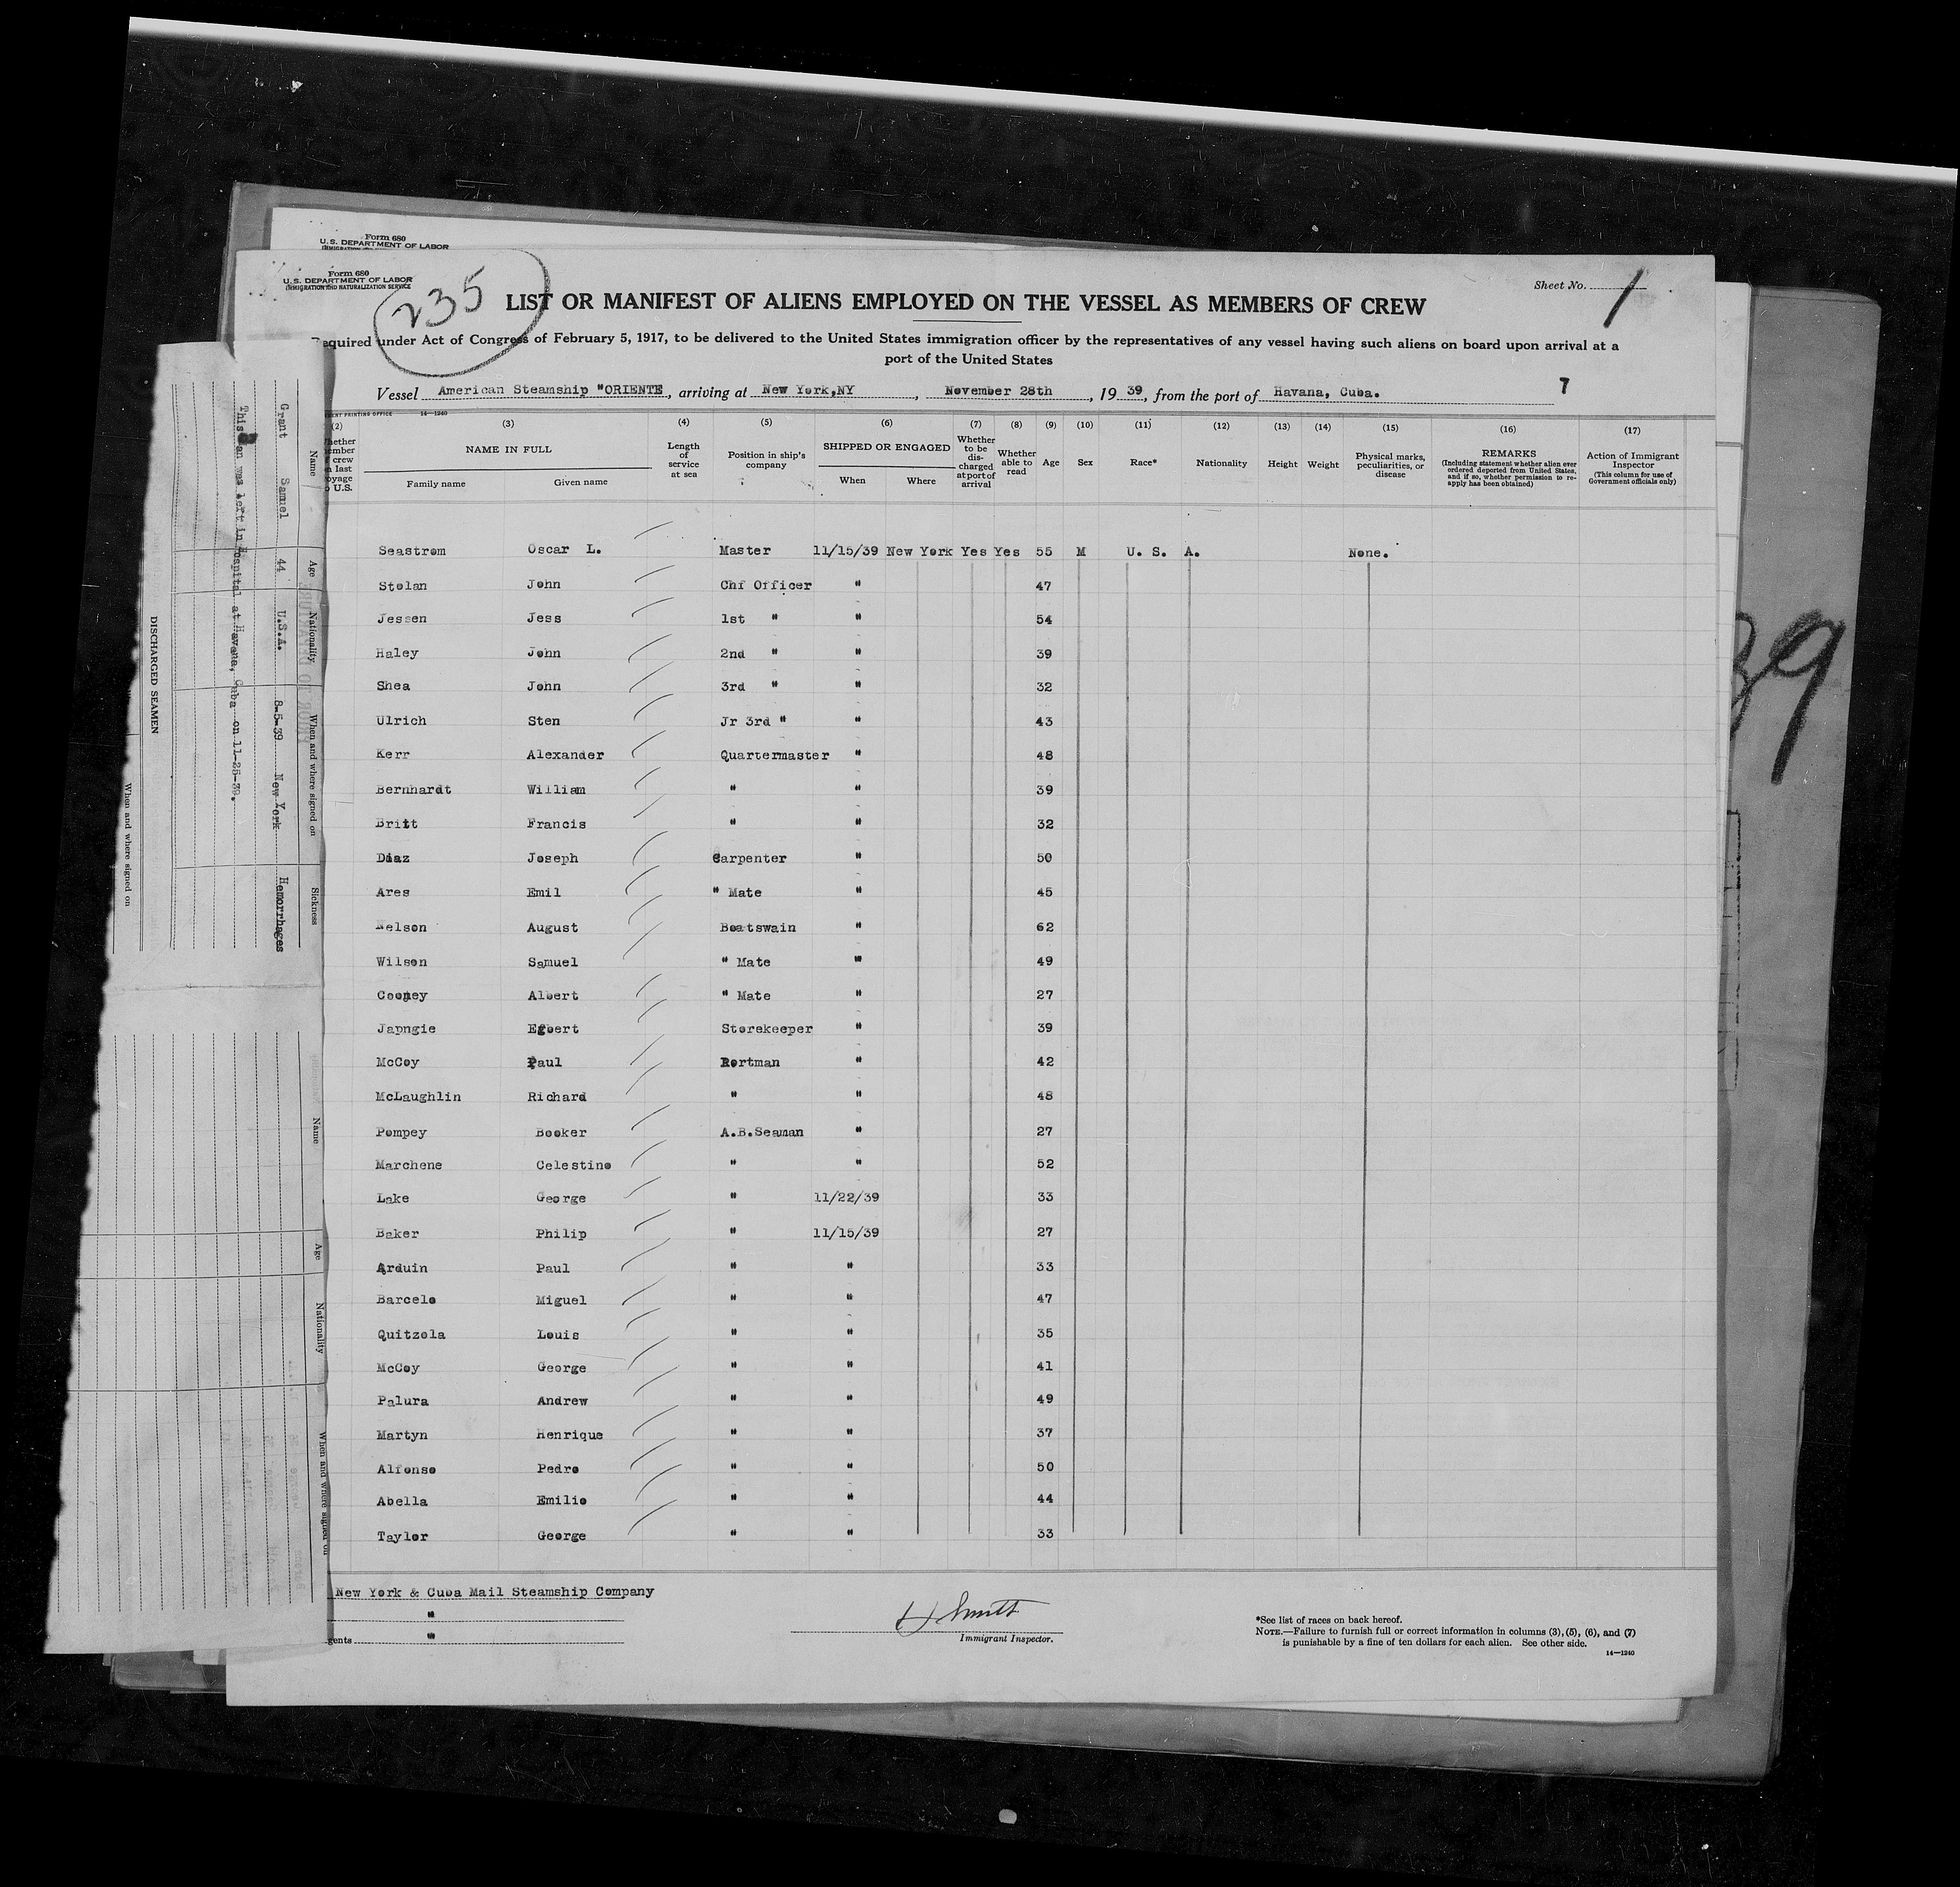 Form 680
U. S. DEPARTMENT OF LABOR
Form 680
U. S. DEPARTMENT OF LABOR
IMMIGRATION AND NATURALIZATION SERVICE
235
Sheet No. 1
LIST OR MANIFEST OF ALIENS EMPLOYED ON THE VESSEL AS MEMBERS OF CREW
Required under Act of Congress of February 5, 1917, to be delivered to the United States immigration officer by the representatives of any vessel having such aliens on board upon arrival at a
port of the United States
Vessel American Steamship "ORIENTE, arriving at New York,NY, November 28th, 19 39, from the port of Havana, Cuba. 7
14—1240
(2) (3) (4) (5) (6) (7) (8) (9) (10) (11) (12) (13) (14) (15) (16) (17)
NAME IN FULL
Family name
Given name
Length of service at sea
Position in ship's company
SHIPPED OR ENGAGED
When
Where
Whether to be discharged at port of arrival
Whether able to read
Age
Sex
Race*
Nationality
Height
Weight
Physical marks, peculiarities, or disease
REMARKS
(Including statement whether alien ever ordered deported from United States, and if so, whether permission to reapply has been obtained)
Action of Immigrant Inspector
(This column for use of Government officials only)
Seastrom Oscar L. Master 11/15/39 New York Yes Yes 55 M U. S. A. None.
Stolan John Chf Officer " 47
Jessen Jess 1st " " 54
Haley John 2nd " " 39
Shea John 3rd " " 32
Ulrich Sten Jr 3rd " " 43
Kerr Alexander Quartermaster " 48
Bernhardt William " " 39
Britt Francis " " 32
Diaz Joseph Carpenter " 50
Ares Emil " Mate " 45
Nelson August Boatswain " 62
Wilson Samuel " Mate " 49
Cooney Albert " Mate " 27
Japngie Egbert Storekeeper " 39
McCoy Paul Portman " 42
McLaughlin Richard " " 48
Pompey Booker A.B.Seaman " 27
Marchene Celestino " " 52
Lake George " 11/22/39 33
Baker Philip " 11/15/39 27
Arduin Paul " " 33
Barcelo Miguel " " 47
Quitzola Louis " " 35
McCoy George " " 41
Palura Andrew " " 49
Martyn Henrique " " 37
Alfonso Pedro " " 50
Abella Emilio " " 44
Taylor George " " 33
New York & Cuba Mail Steamship Company
"
gents "
Immigrant Inspector.
*See list of races on back hereof.
NOTE.—Failure to furnish full or correct information in columns (3), (5), (6), and (7)
is punishable by a fine of ten dollars for each alien. See other side.
14—1240
Name Age Nationality When and where signed on Sickness
Grant Samuel 44 U.S.A. 8-5-39 New York Hemorrhages
This man was left in Hospital at Havana, Cuba on 11-25-39.
DISCHARGED SEAMEN
When and where signed on
Name Age Nationality When and where signed on
39